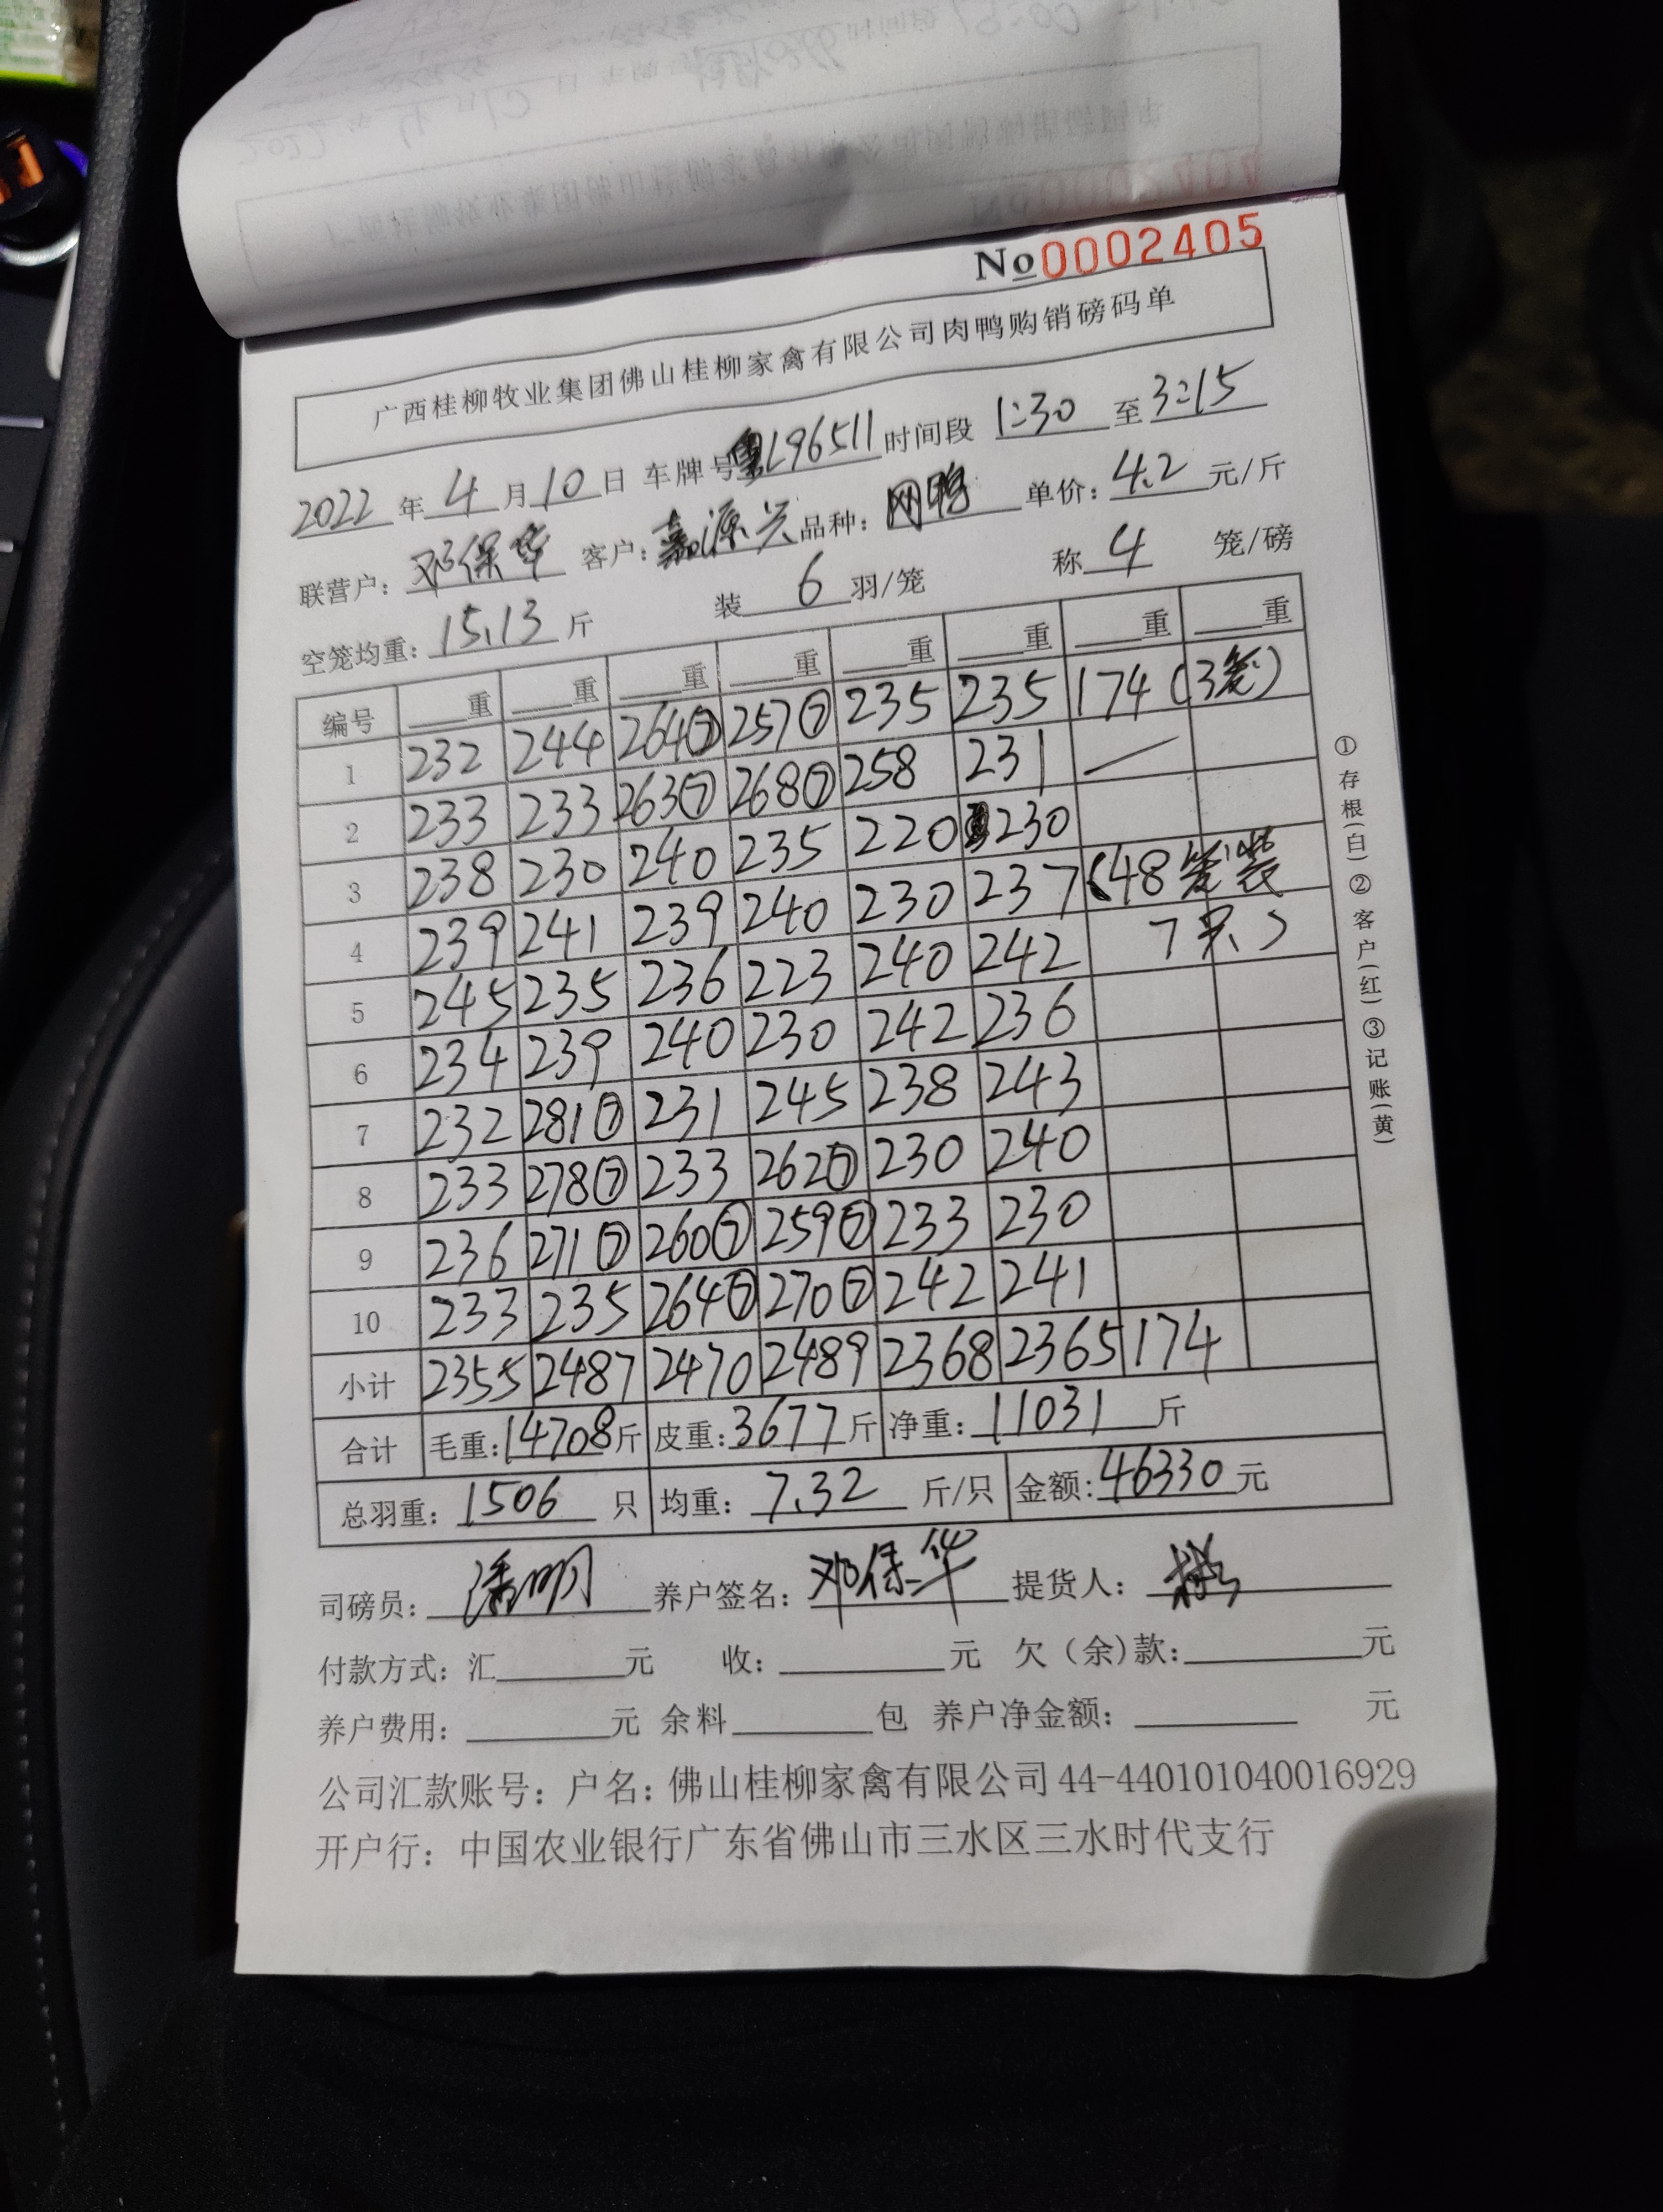 No0002405
广西桂柳牧业集团佛山桂柳家禽有限公司肉鸭购销磅码单
2022年4月10日 车牌号粤L96511时间段 1:30 至3:15
联营户：邓保华 客户：嘉源兴品种：网鸭 单价：4.2元/斤
空笼均重：15.13斤 装6羽/笼 称4笼/磅
编号 重 重 重 重 重 重 重 重
1 232 244 264⑦ 257⑦ 235 235 174 (3笼)
2 233 233 263⑦ 268⑦ 258 231 —
3 238 230 240 235 220 230
4 239 241 239 240 230 237 (48笼装
5 245 235 236 223 240 242 7只)
6 234 239 240 230 242 236
7 232 281⑦ 231 245 238 243
8 233 278⑦ 233 262⑦ 230 240
9 236 271⑦ 260⑦ 259⑦ 233 230
10 233 235 264⑦ 270⑦ 242 241
小计 2355 2487 2470 2489 2368 2365 174
合计 毛重：14708斤 皮重：3677斤 净重：11031斤
总羽重：1506只 均重：7.32斤/只 金额：46330元
司磅员：潘明 养户签名：邓保华 提货人：
付款方式：汇 元 收： 元 欠（余)款： 元
养户费用： 元 余料 包 养户净金额： 元
公司汇款账号：户名：佛山桂柳家禽有限公司 44-440101040016929
开户行：中国农业银行广东省佛山市三水区三水时代支行
①存根(白)②客户(红)③记账(黄)